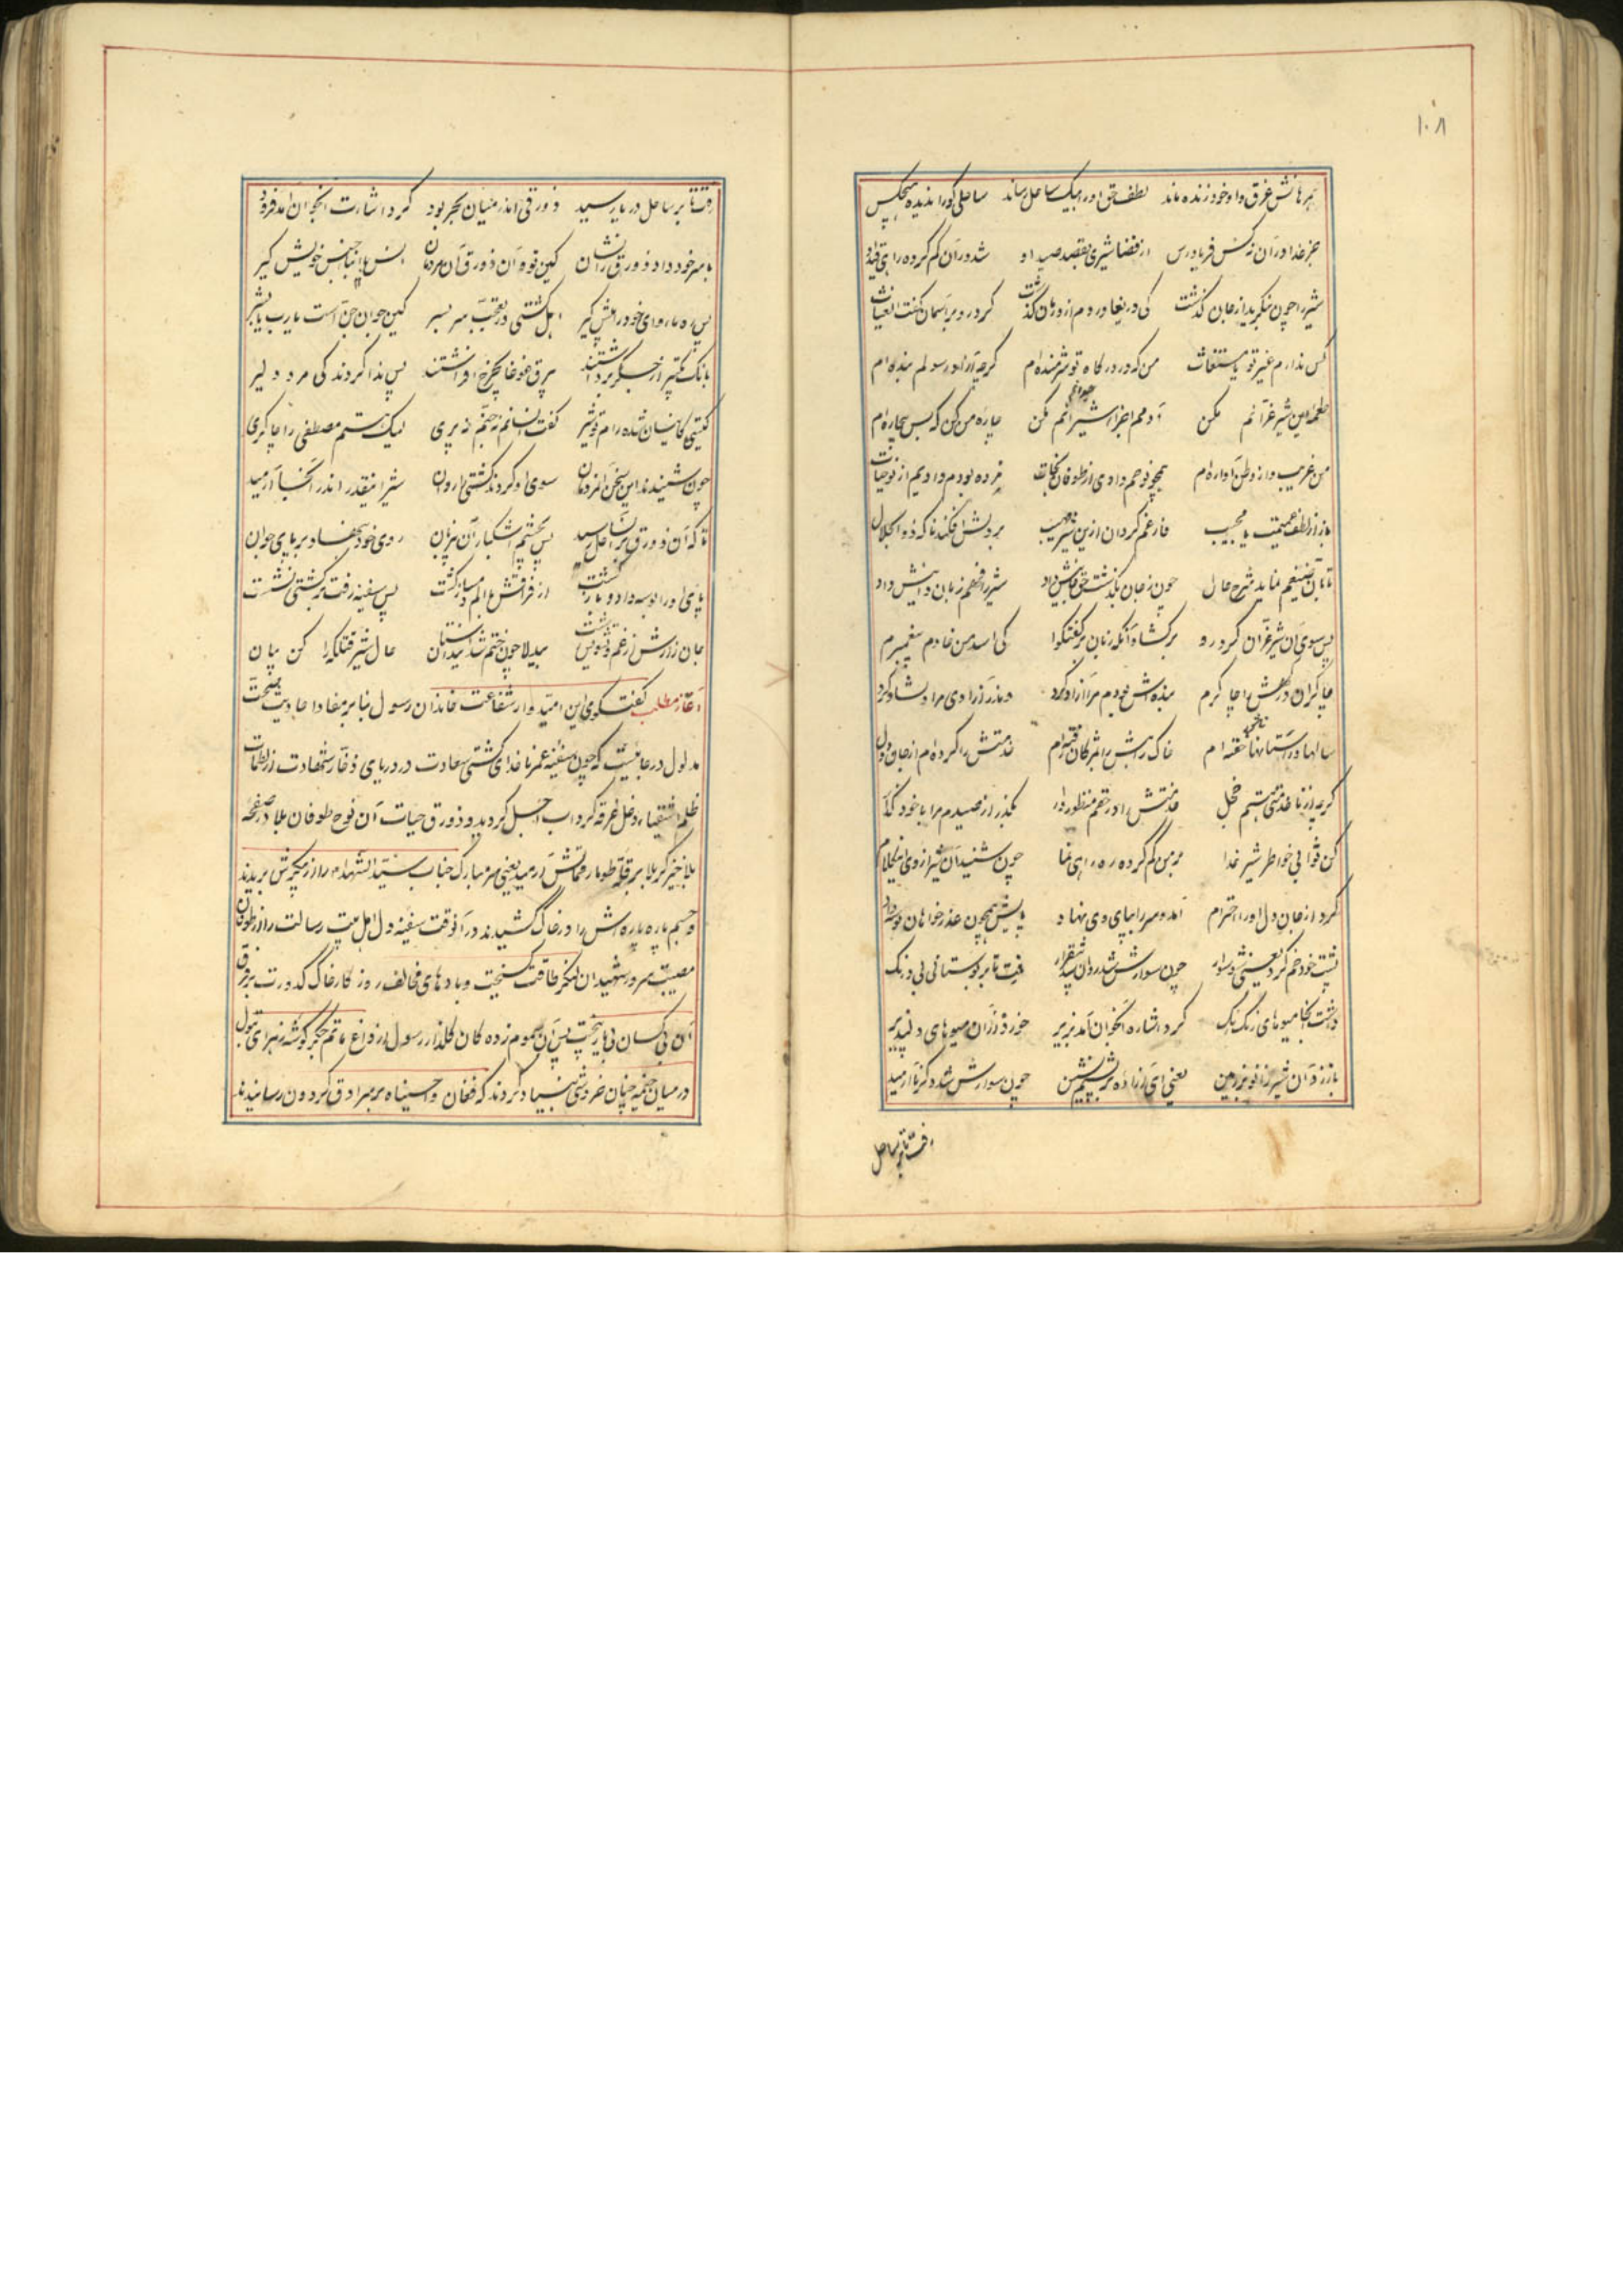 ۱۰۸
همرهانش غرق و او خود زنده ماند لطف حق او را بیک ساحل رساند ساحلی کو را ندیده هیچکس
جز خدا در آن نه کس فریادرس از قضا شیری بقصد صید او شد در آن گم کرده را
شیر را چون بنگرید از جان گذشت کی دریغا در دم از دوران گذشت کرد رو بر آسمان گفت الغیاث
کس ندارم غیر تو یا مستغاث من که در درگاه تو شرمنده ام گرچه آزاد رسولم بنده ام
طعمهٔ این شیر غرانم مکن آدمم اجزا شیرانم مکن چاره من کن که بس بیچاره ام
من غریب و از وطن آواره ام همچو نوحم دادی از طوفان نجات مرده بودم دادیم از نو حیات
باز از لطف عمیمت یا مجیب فارغم گردان ازین شیر مهیب در دلش افکند ناگه ذوالجلال
تا بآن ضیغم نماید شرح حال چون ز جان بگذشت حق جانش داد شیر را فهم زبان دانیش داد
پس سوی آن شیر غران کرد رو برگشاد آنگه زبان بر گفتگو کی اسد من خادم پیغمبرم
چاکران درگهش را چاکرم بنده اش بودم مرا آزاد کرد در آزادی مرا دلشاد کرد
سالها در آستانها خفته ام خاک راهش را بمژگان رفته ام خدمتش را کرده ام از جان و دل
گرچه از ناخدمتی هستم خجل خدمتش را در حقم منظور دار بگذر از صیدم مرا با خود گذار
کن ثوابی خواطر شیر خدا بر من گم کرده ره راهی نما چون شنید آن شیر از وی این کلام
کرد از جان و دل او را احترام آمد و سر را بپای وی نهاد پایش همچون عذرخواهان بوسه داد
پشت خود خم کرد یعنی شو سوار چون سوارش شد روان شد بیقرار رفت تا بر بوستانی بی درنگ
داشت آنجا میوهای رنگ رنگ کرد اشاره آنجوان آمد بزیر خورد از آن میوهای دلپذیر
باز زد آن شیر زانو بر زمین یعنی ای آزاده بر پشتم نشین چون سوارش شد دگر ره آرمید
رفت تا بر ساحل
رفت تا بر ساحل دریا رسید زورقی اندر میان بحر بود کرد اشارت آنجوان آمد فرود
با سر خود داد زورق را نشان کین تو و آن زورق آن مردمان انس با ابنای جنس خویش گیر
پس ره مأوای خود در پیش گیر اهل کشتی در تعجب سر بسر کین جوان جن است یا رب یا بشر
بانگ تکبیر از جگر برداشتند برق غوغا بچرخ افراشتند پس ندا کردند کی مرد دلیر
کیستی کانسان شده رام تو شیر گفت انسانم نه جنم نه پری لیک هستم مصطفی را چاکری
چون شنیدند این سخن آنمردمان سوی او کردند کشتی را روان شیر اینقدر اندر آنجا آرمید
تا که آن زورق بر آن ساحل رسید پس بچشم اشکبار آن شیر روی خود بنهاد بر پای جوان
پای او را بوسه داد و بازگشت از فراقش با الم دمساز گشت پس سفینه رفت بر کشتی نشست
جان زارش از غم و تشویش رست بیدلا چون ختم شد این داستان حال شیر قتلگه را کن بیان
آغاز مطلب گفتگوی این امیدوار شفاعت خاندان رسول بنابر مفاد احادیث صحت
مدلول در عاقبت که چون سفینه عمر ناخدای کشتی سعادت در دریای ذخار شهادت از تلاطمات
ظلم اشقیاء دغل غرقه گرداب اجل گردید و زورق حیات آن نوح طوفان بلا در صفحه
بلاخیز کربلا بر قله طومار آرمید یعنی سر مبارک جناب سید الشهداء را از پیکرش بریدند
و جسم پاره پاره اش را در خاک کشیدند در آنوقت سفینه دل اهل بیت رسالت را از طوفان
مصیبت سرور شهیدان لنگر طاقت گسیخت و بادهای مخالف روزگار خاک کدورت بر فرق
آن بی کسان بی یار بیخت پس آن سموم زده کان گلذار رسول از داغ ماتم جگر گوشه زهرای بتول
در میان خیمه چنان خروشی بنیاد کردند که فغان وا حسیناه بر سرادق گردون رسانیدند